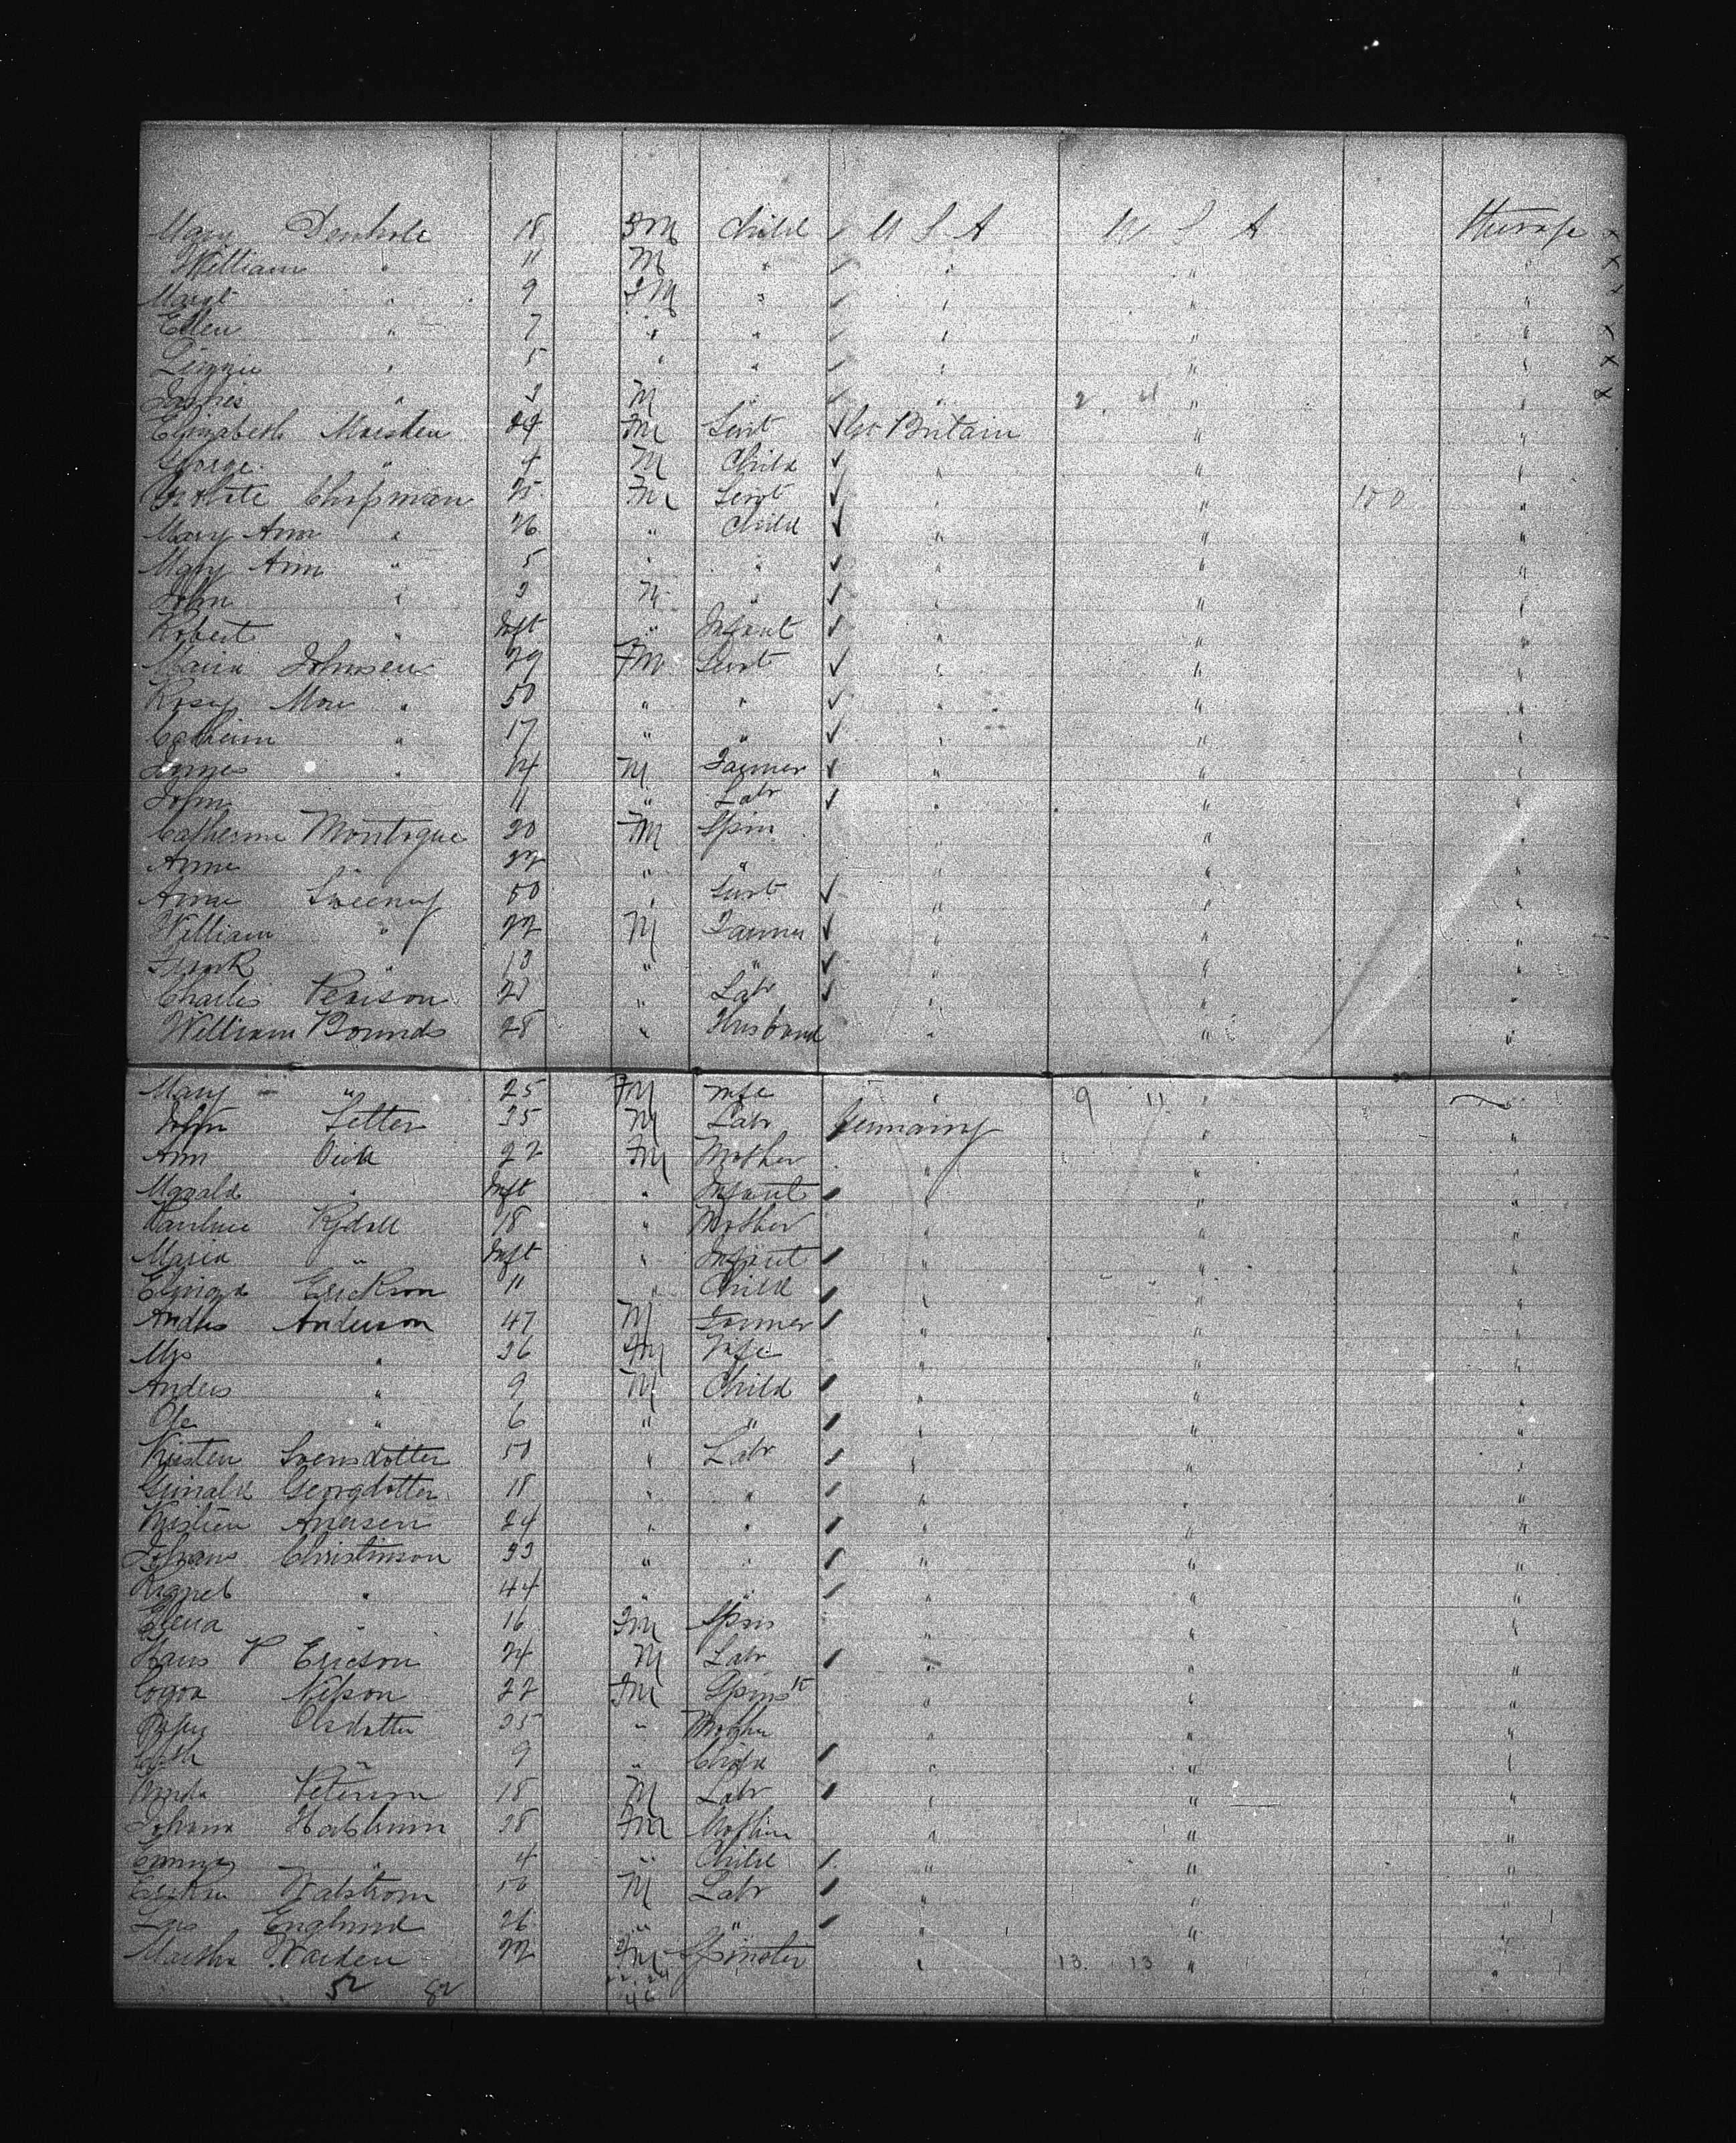 Mary Denhole 18 Fm Child U S A U S A Steerage x
William " 11 M " " " " x
Margt " 9 Fm " " " " x
Ellen " 7 " " " " " x
Lizzie " 5 " " " " " x
James " 3 M " " 2. 11 " " x
Elizabeth Marsden 24 Fm Servt Gt Britain " "
George " 4 M Child " " "
Chapman 25 Fm Servt " " 100 "
Mary Ann " 26 " Child " " "
Mary Ann " 5 " " " " "
John " 3 M " " " "
Robert " Inft " Infant " " "
Maria Johnsen 29 Fm Servt " " "
Rosey Mow " 50 " " " " "
Catherin " 17 " " " " "
James " 14 M Farmer " " "
John " 11 " Labr " " "
Catherine Montague 20 Fm Spin " " "
Anne " 22 " " " " "
Annie Sweeney 50 " Servt " " "
William " 22 M Farmer " " "
Frank " 13 " " " " "
Charles Pearson " Labr " " "
William Bounds 28 " Husband " " "
Mary " 25 Fm Wife " 9 11 " "
John Setter 35 M Labr Germany " "
Ann Dick 22 Fm Mother " " "
" Inft " Infant " " "
Rydell 18 " Mother " " "
Maria " Inft " Infant " " "
Erickson 11 " Child " " "
Andrs Anderson 47 M Farmer " " "
Mrs " 36 Fm Wife " " "
Anders " 9 M Child " " "
Ole " 6 " " " " "
Kristen Svensdotter 50 " Labr " " "
Georgdotter 18 " " " " "
Kristien Anersen 24 " " " " "
Johans Christinson 33 " " " " "
" 44 " " " " "
Elena " 16 Fm Spin " " "
Hans P Ericson 24 M Labr " " "
Nilson 22 Fm Spins " " "
Olsdotter 35 " Mother " " "
" 9 " Child " " "
Peterson 18 M Labr " " "
Johana 38 Fm Mother " " "
" 4 " Child " " "
Walstrom M Labr " " "
Lars Englund 26 " " " " "
Martha Warden 22 Fm Spinster " 13. 13 " "
52 82 46